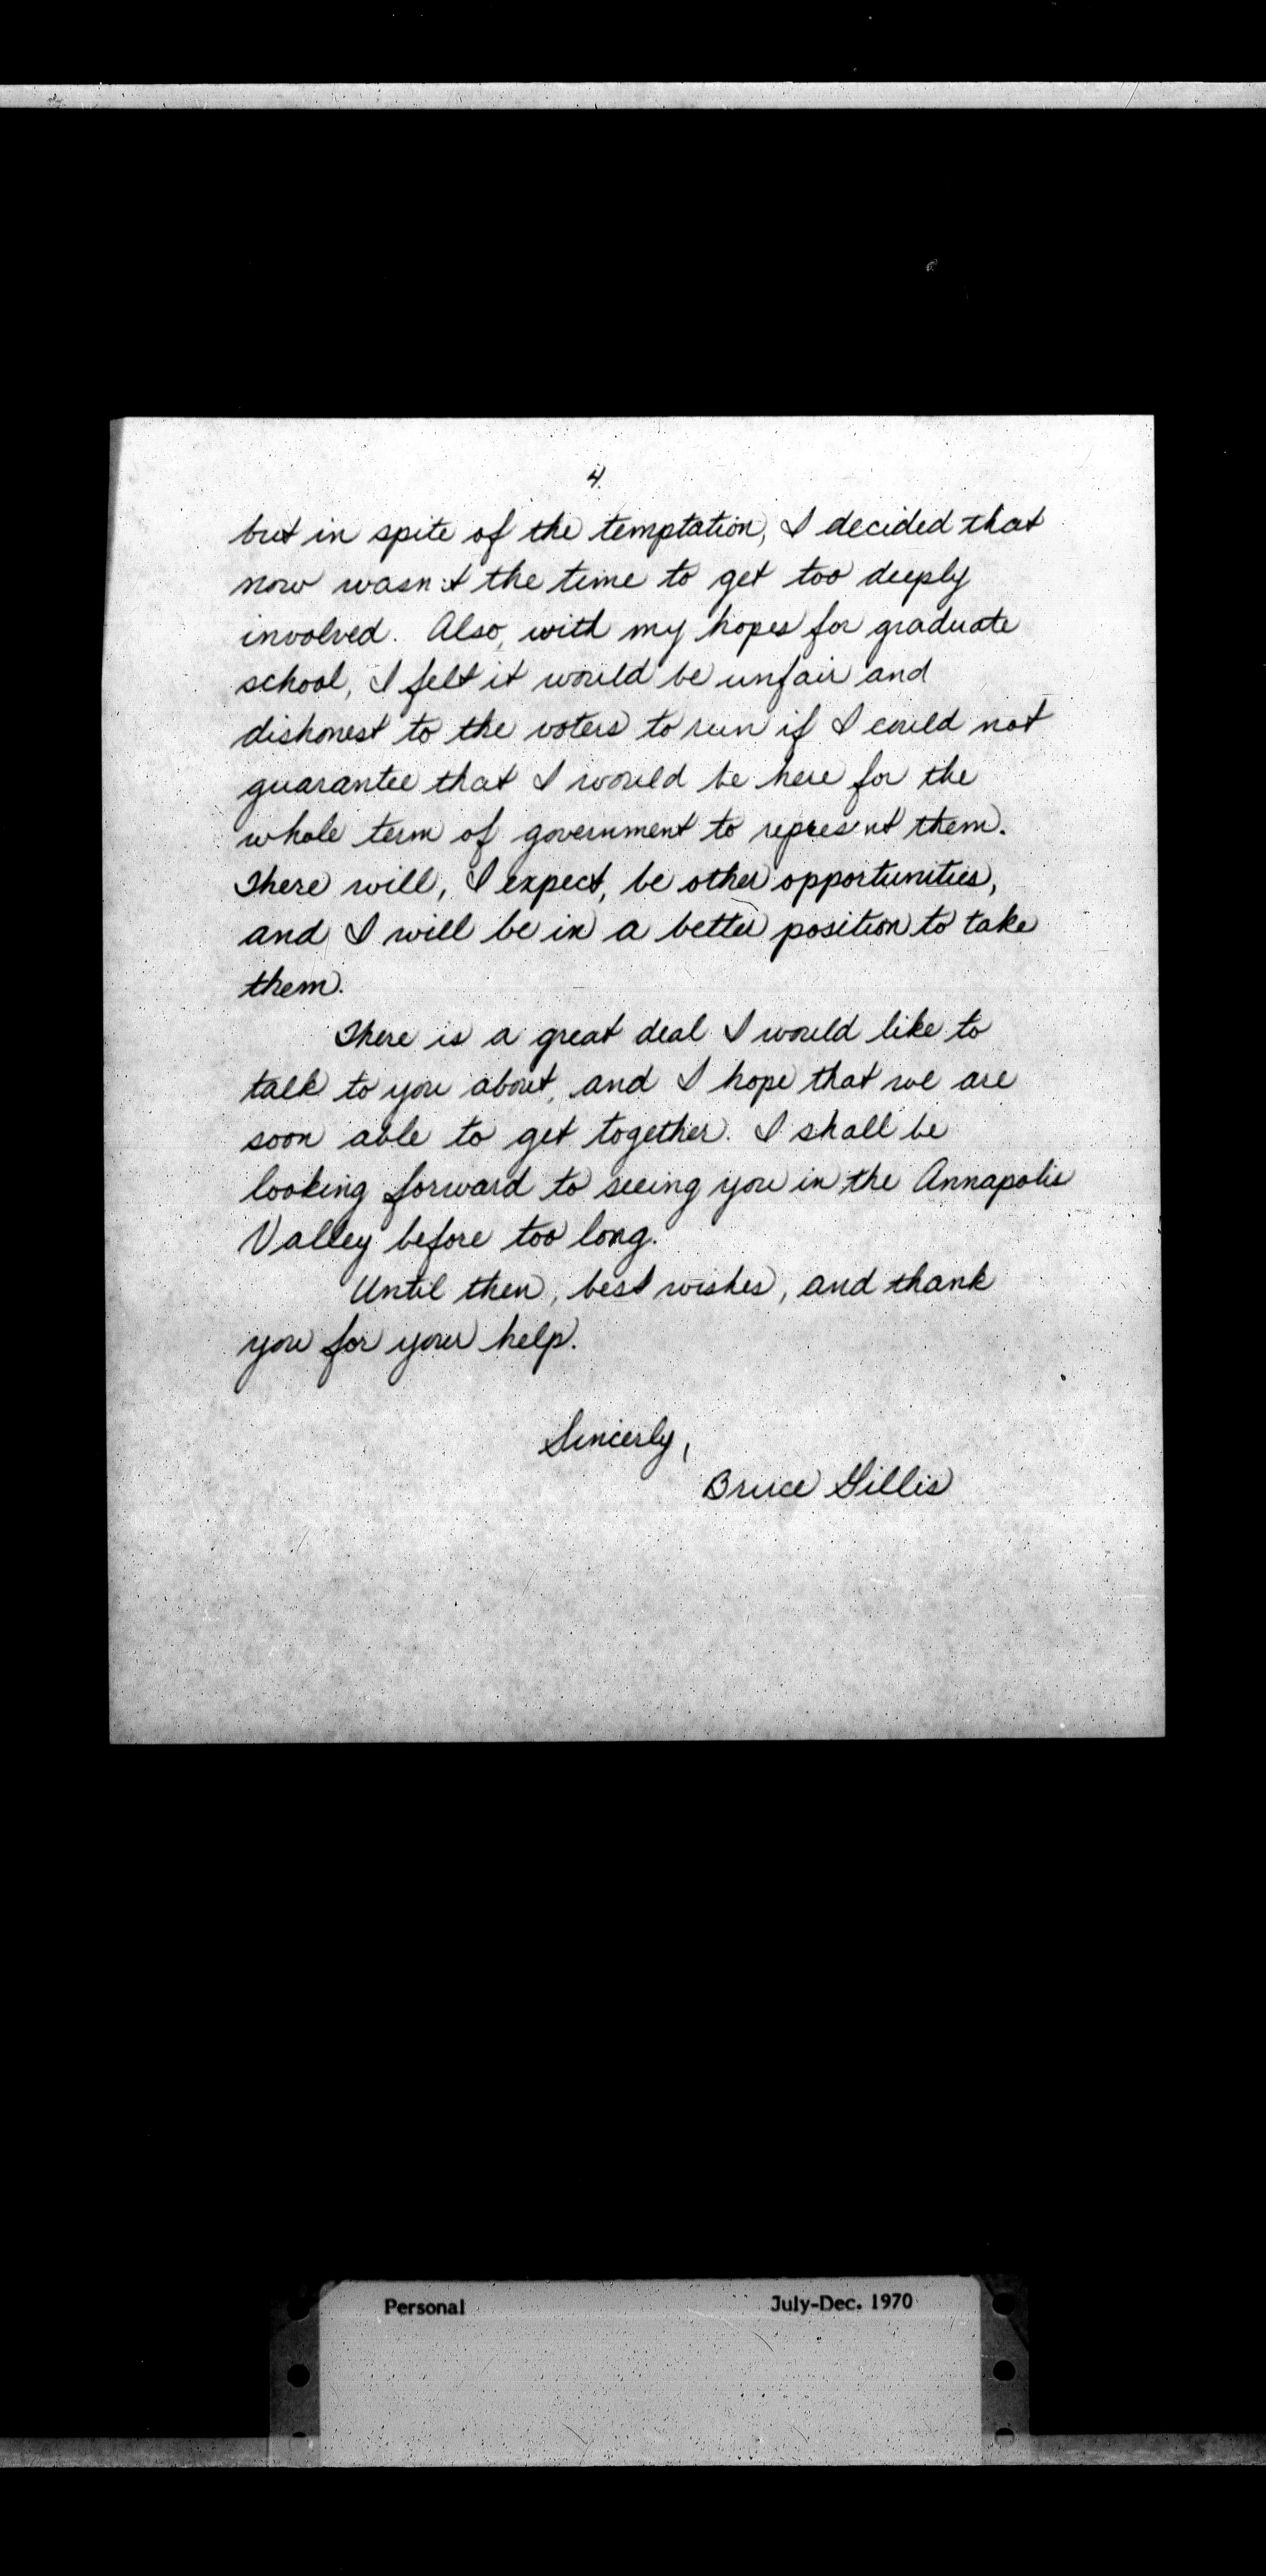 4.
but in spite of the temptation, I decided that
now wasn't the time to get too deeply
involved. Also, with my hopes for graduate
school, I felt it would be unfair and
dishonest to the voters to run if I could not
guarantee that I would be here for the
whole term of government to represent them.
There will, I expect, be other opportunities,
and I will be in a better position to take
them.
There is a great deal I would like to
talk to you about, and I hope that we are
soon able to get together. I shall be
looking forward to seeing you in the Annapolis
Valley before too long.
Until then, best wishes, and thank
you for your help.
Sincerly,
Bruce Gillis
Personal July-Dec. 1970